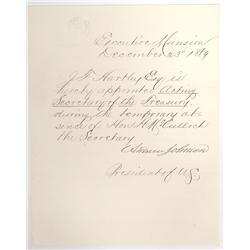 Executive Mansion
December 23d 186
J. F. Hartley Esq. is
hereby appointed Acting
Secretary of the Treasury,
during the temporary ab
sence of Hon. H. McCulloch
the Secretary
Andrew Johnson
President of US